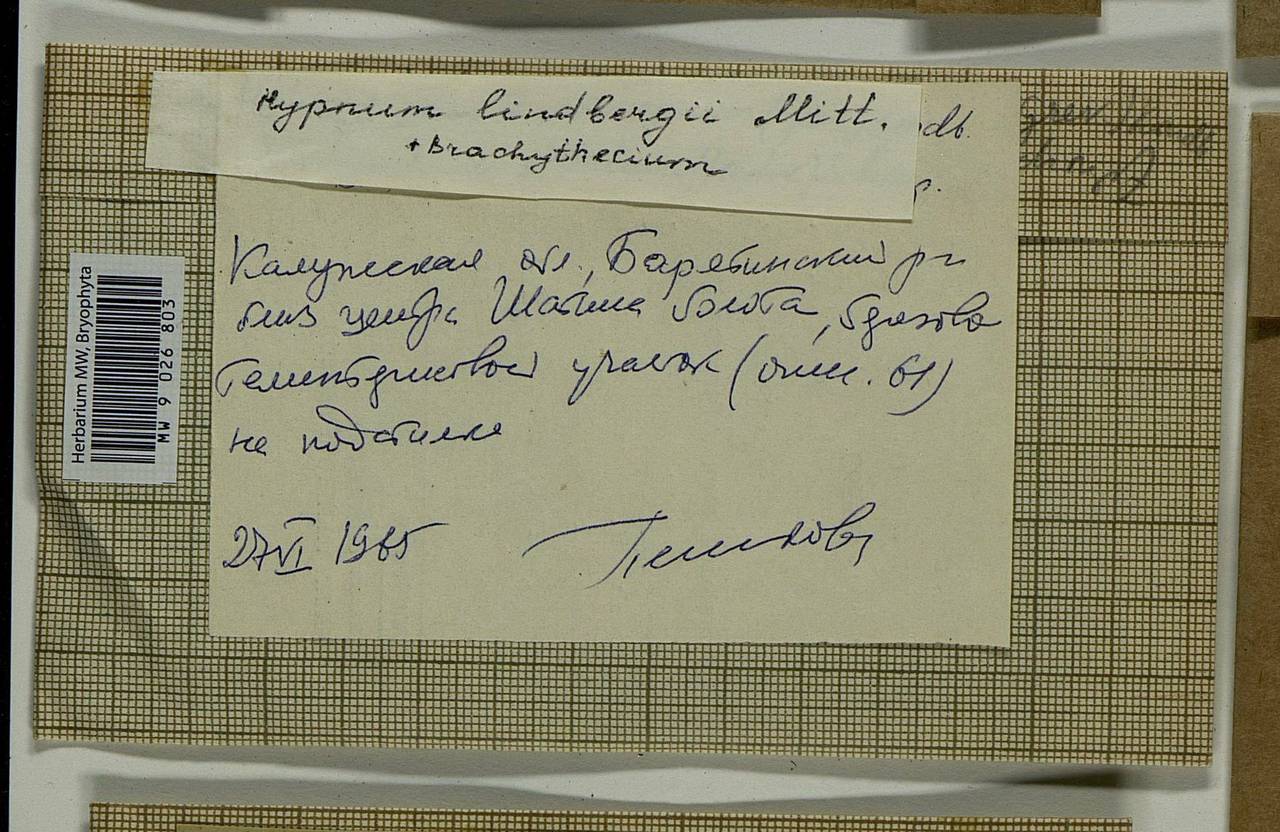 Hypnum lindbergii Mitt.
+ Brachythecium
Калужская обл., Барятинский р-н
близ центра Шатина болота,
участок (опис. 61)
на подстилке
27 VI 1985
Herbarium MW, Bryophyta
MW 9 026 803